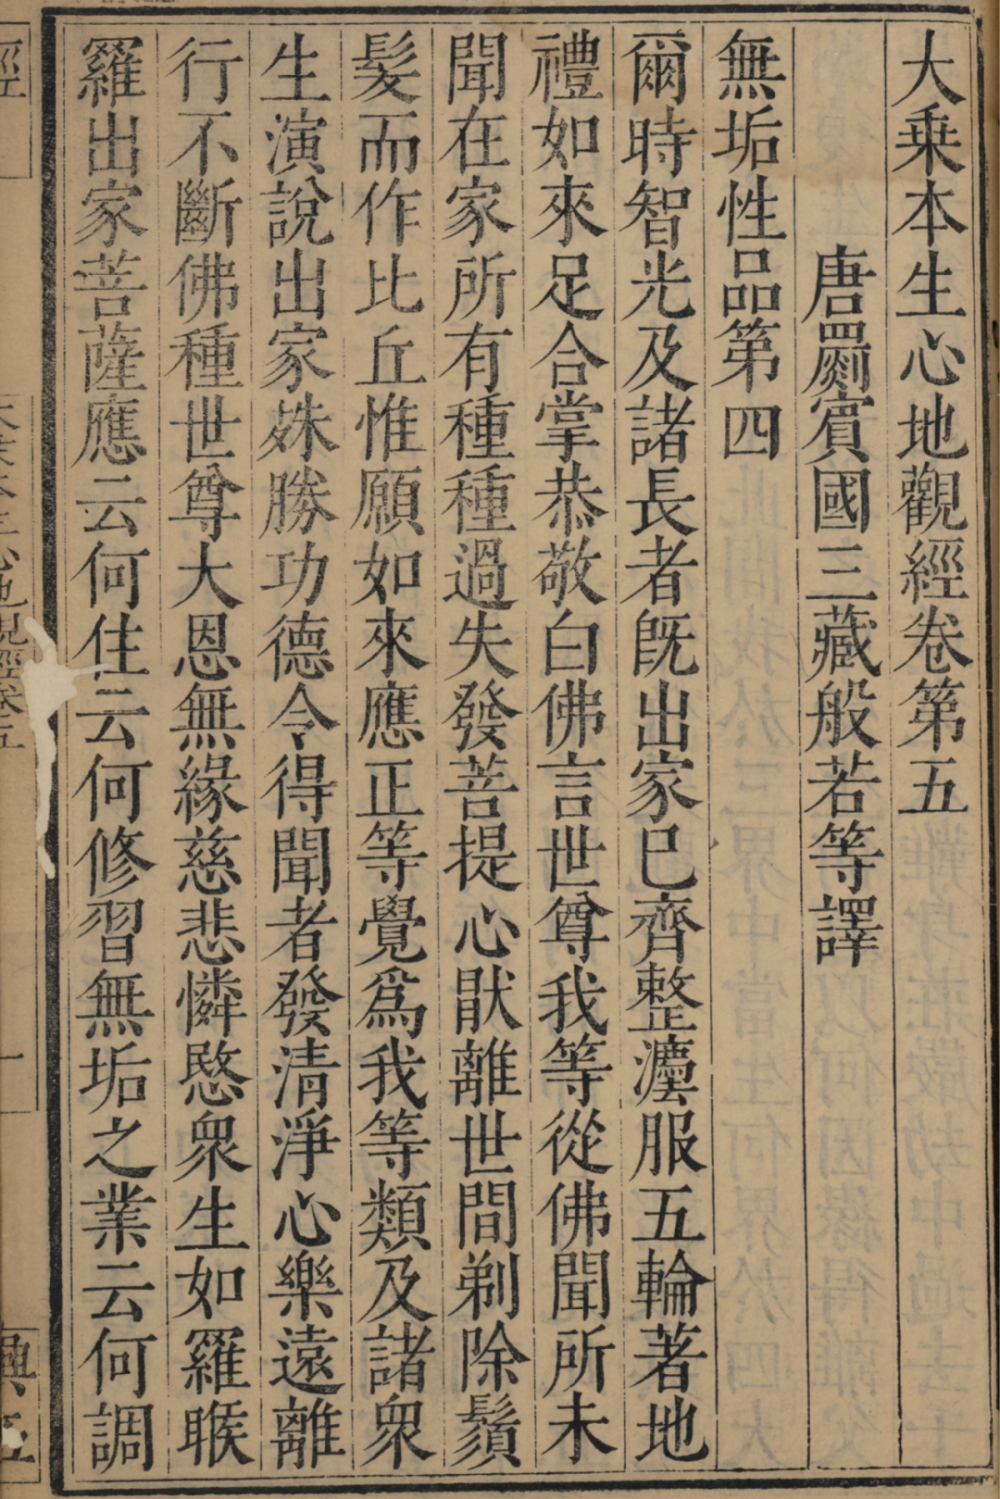 大乗本生心地觀經卷第五
唐罽賓國三藏般若等譯
無垢性品第四
爾時智光及諸長者旣出家巳齊整灋服五輪著地
禮如來足合掌恭敬白佛言世尊我等從佛聞所未
聞在家所有種種過失發菩提心猒離世間剃除鬚
髮而作比丘惟願如來應正等覺爲我等類及諸衆
生演說出家殊勝功德令得聞者發清淨心樂遠離
行不斷佛種世尊大恩無緣慈悲憐愍衆生如羅睺
羅出家菩薩應云何住云何修習無垢之業云何調